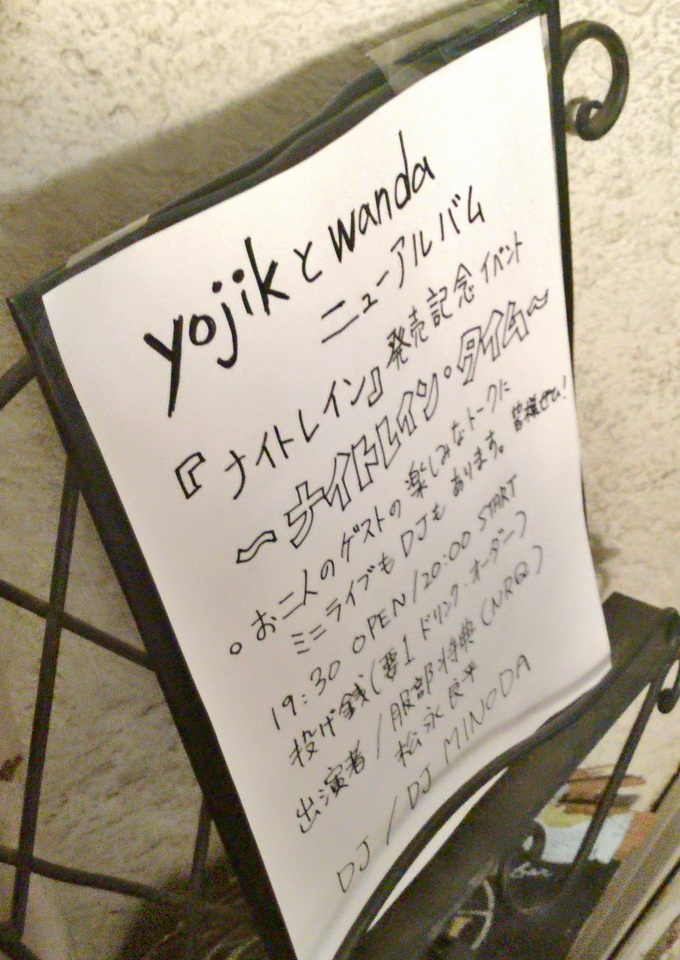 yojikとwanda
ニューアルバム
『ナイトレイン』発売記念イベント
～ナイトレイン・タイム～
。お二人のゲストの楽しみなトークに
ミニライブもDJもあります。皆様ぜひ!
19:30 OPEN/20:00 START
投げ銭(要1ドリンク・オーダー)
出演者/服部将典(NRQ)
松永良平
DJ/DJ MINODA
Bar